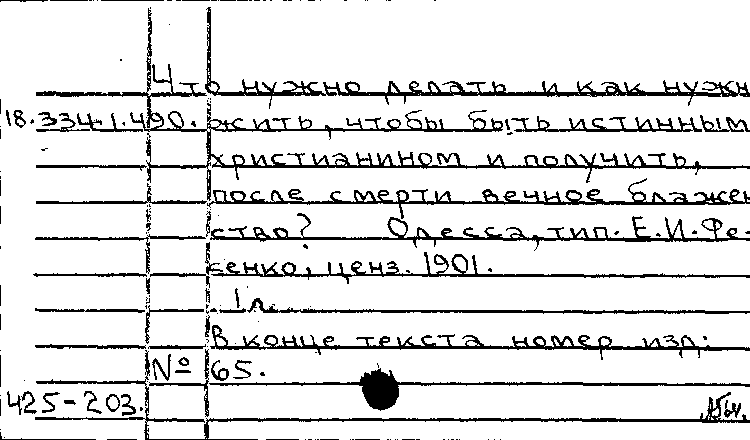 Что нужно делать и как нужн
18.334.1.490. жить, чтобы быть истинным
христианином и получить,
после смерти вечное блажен
ство? Одесса, тип. Е.И.Фе-
сенко, ценз. 1901.
1 л.
В конце текста номер изд:
№ 65.
425-203.